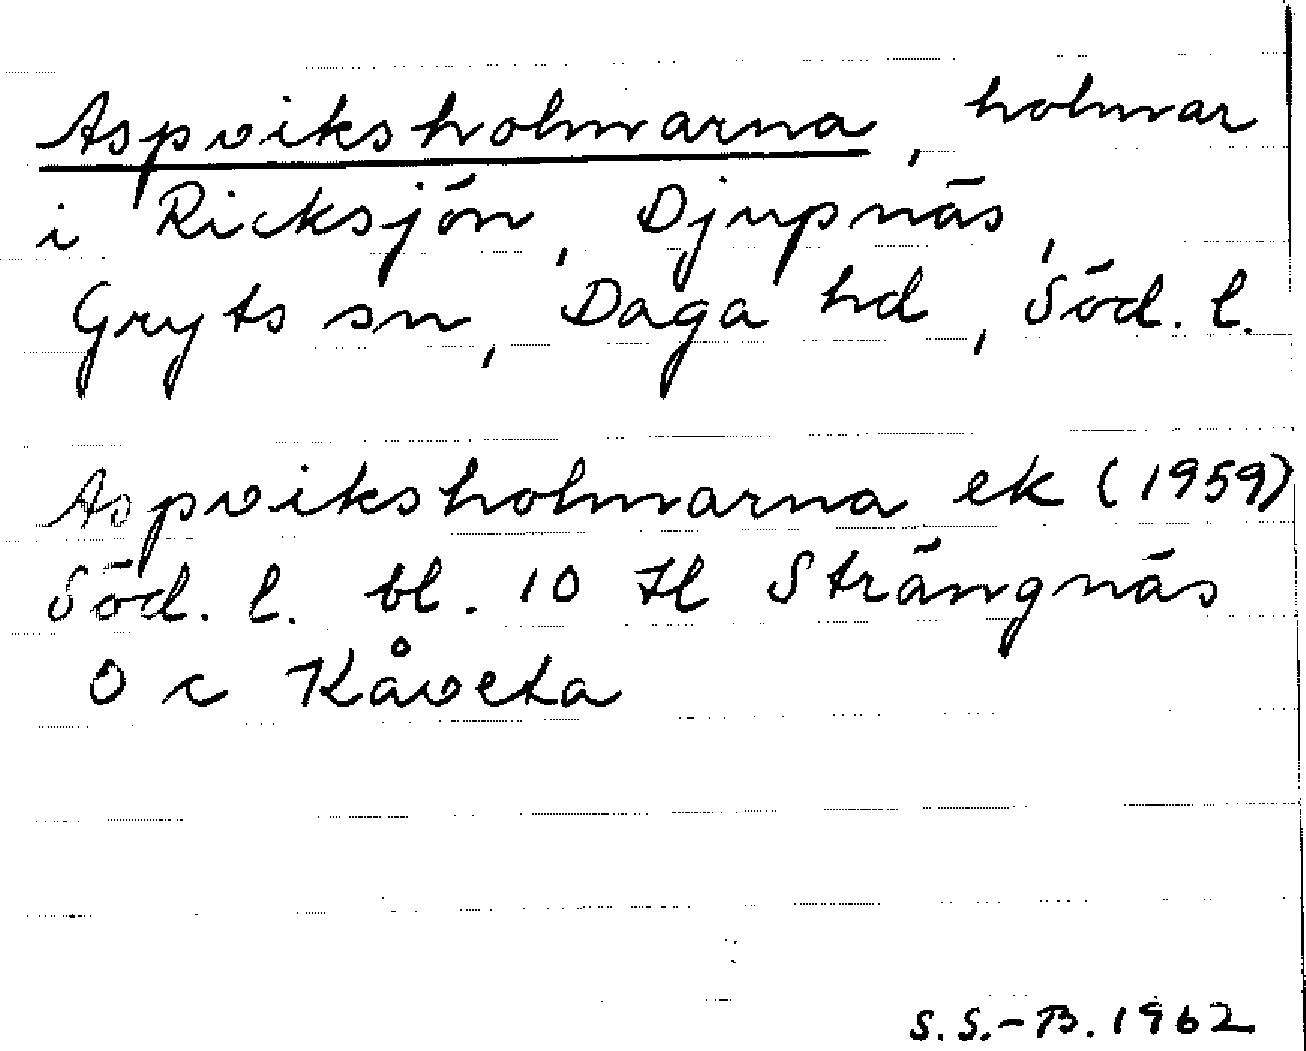 Aspviksholmarna, holmar
i Ricksjön, Djupnäs,
Gryts sn, Daga hd, Söd. l.
Aspviksholmarna ek (1959)
Söd. l. bl. 10 H Strängnäs
0 c Kåveta
S.S.-B. 1962